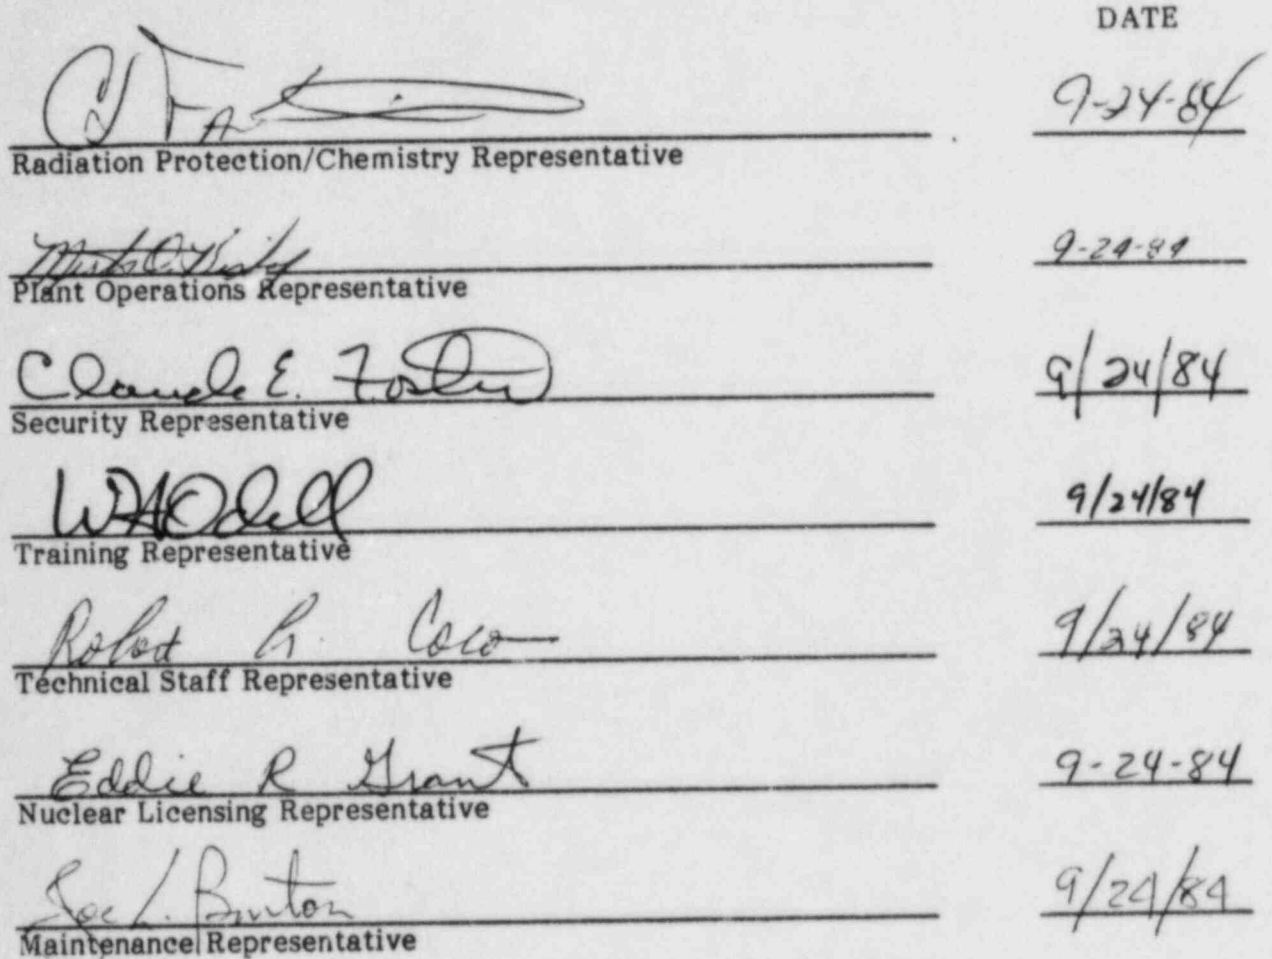 DATE
9-24-84
Radiation Protection/Chemistry Representative
9-24-84
Plant Operations Representative
Claude E. Foster 9/24/84
Security Representative
WHOdell 9/24/84
Training Representative
Robert G. Coco 9/24/84
Technical Staff Representative
Eddie R Grant 9-24-84
Nuclear Licensing Representative
Joe L. Burton 9/24/84
Maintenance Representative